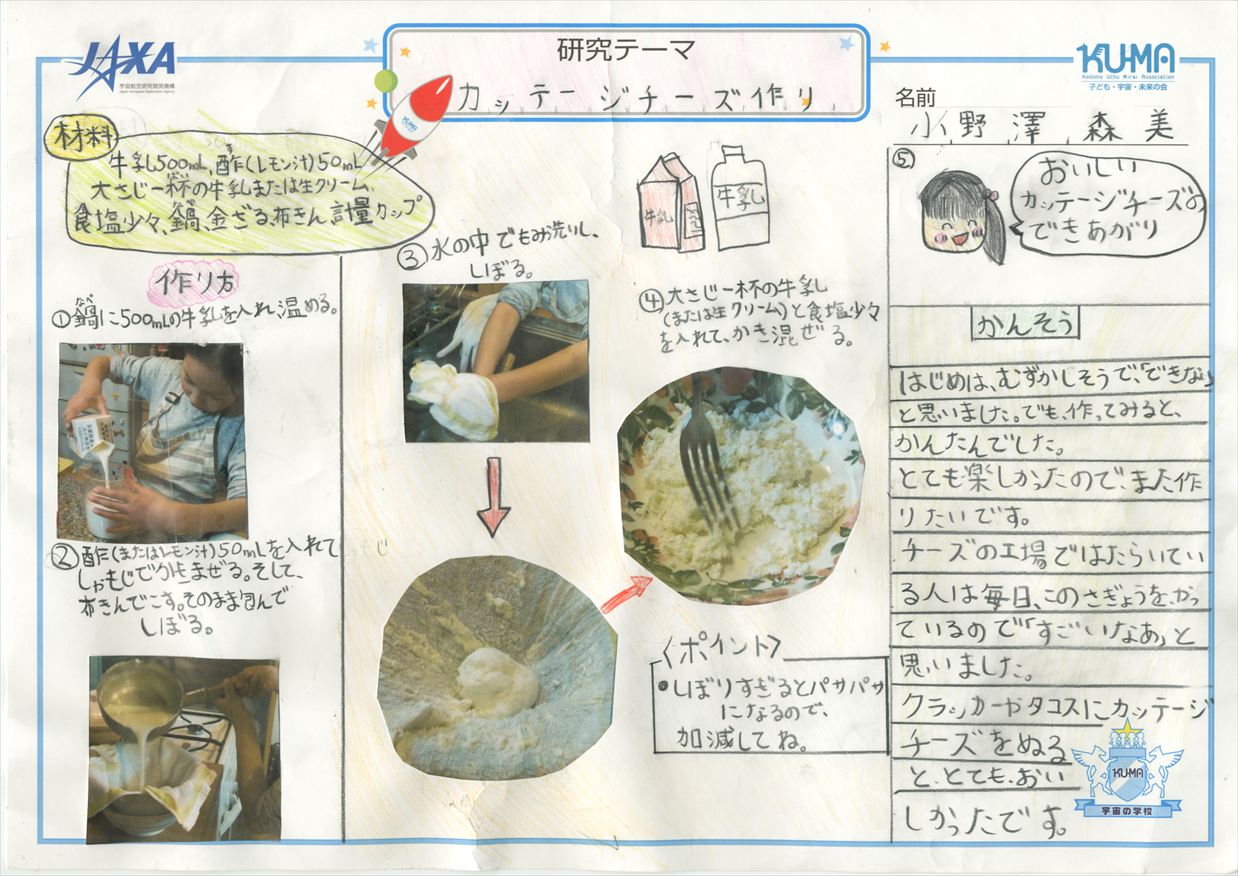 JAXA
宇宙航空研究開発機構
Japan Aerospace Exploration Agency
研究テーマ
カッテージチーズ作り
KUMA
KU-MA
Kodomo Uchu Mirai Association
子ども・宇宙・未来の会
名前
小野澤 森美
材料
牛乳500mL、酢(レモン汁)50mL
大さじ一杯の牛乳または生クリーム、
食塩少々、鍋、金ざる、布きん、計量カップ
作り方
①鍋に500mLの牛乳を入れ、温める。
②酢(またはレモン汁)50mLを入れて
しゃもじでかきまぜる。そして、
布きんでこす。そのまま包んで
しぼる。
③水の中でもみ洗いし、
しぼる。
牛乳
牛乳
④大さじ一杯の牛乳
(または生クリーム)と食塩少々
を入れて、かき混ぜる。
〈ポイント〉
●しぼりすぎるとパサパサ
になるので、
加減してね。
⑤
おいしい
カッテージチーズの
できあがり
かんそう
はじめは、むずかしそうで、「できない」
と思いました。でも、作ってみると、
かんたんでした。
とても楽しかったので、また作
りたいです。
チーズの工場ではたらいてい
る人は毎日、このさぎょうをやっ
ているので「すごいなあ」と
思いました。
クラッカーやタコスにカッテージ
チーズをぬる
と、とても、おい
しかったです。
KUMA
宇宙の学校